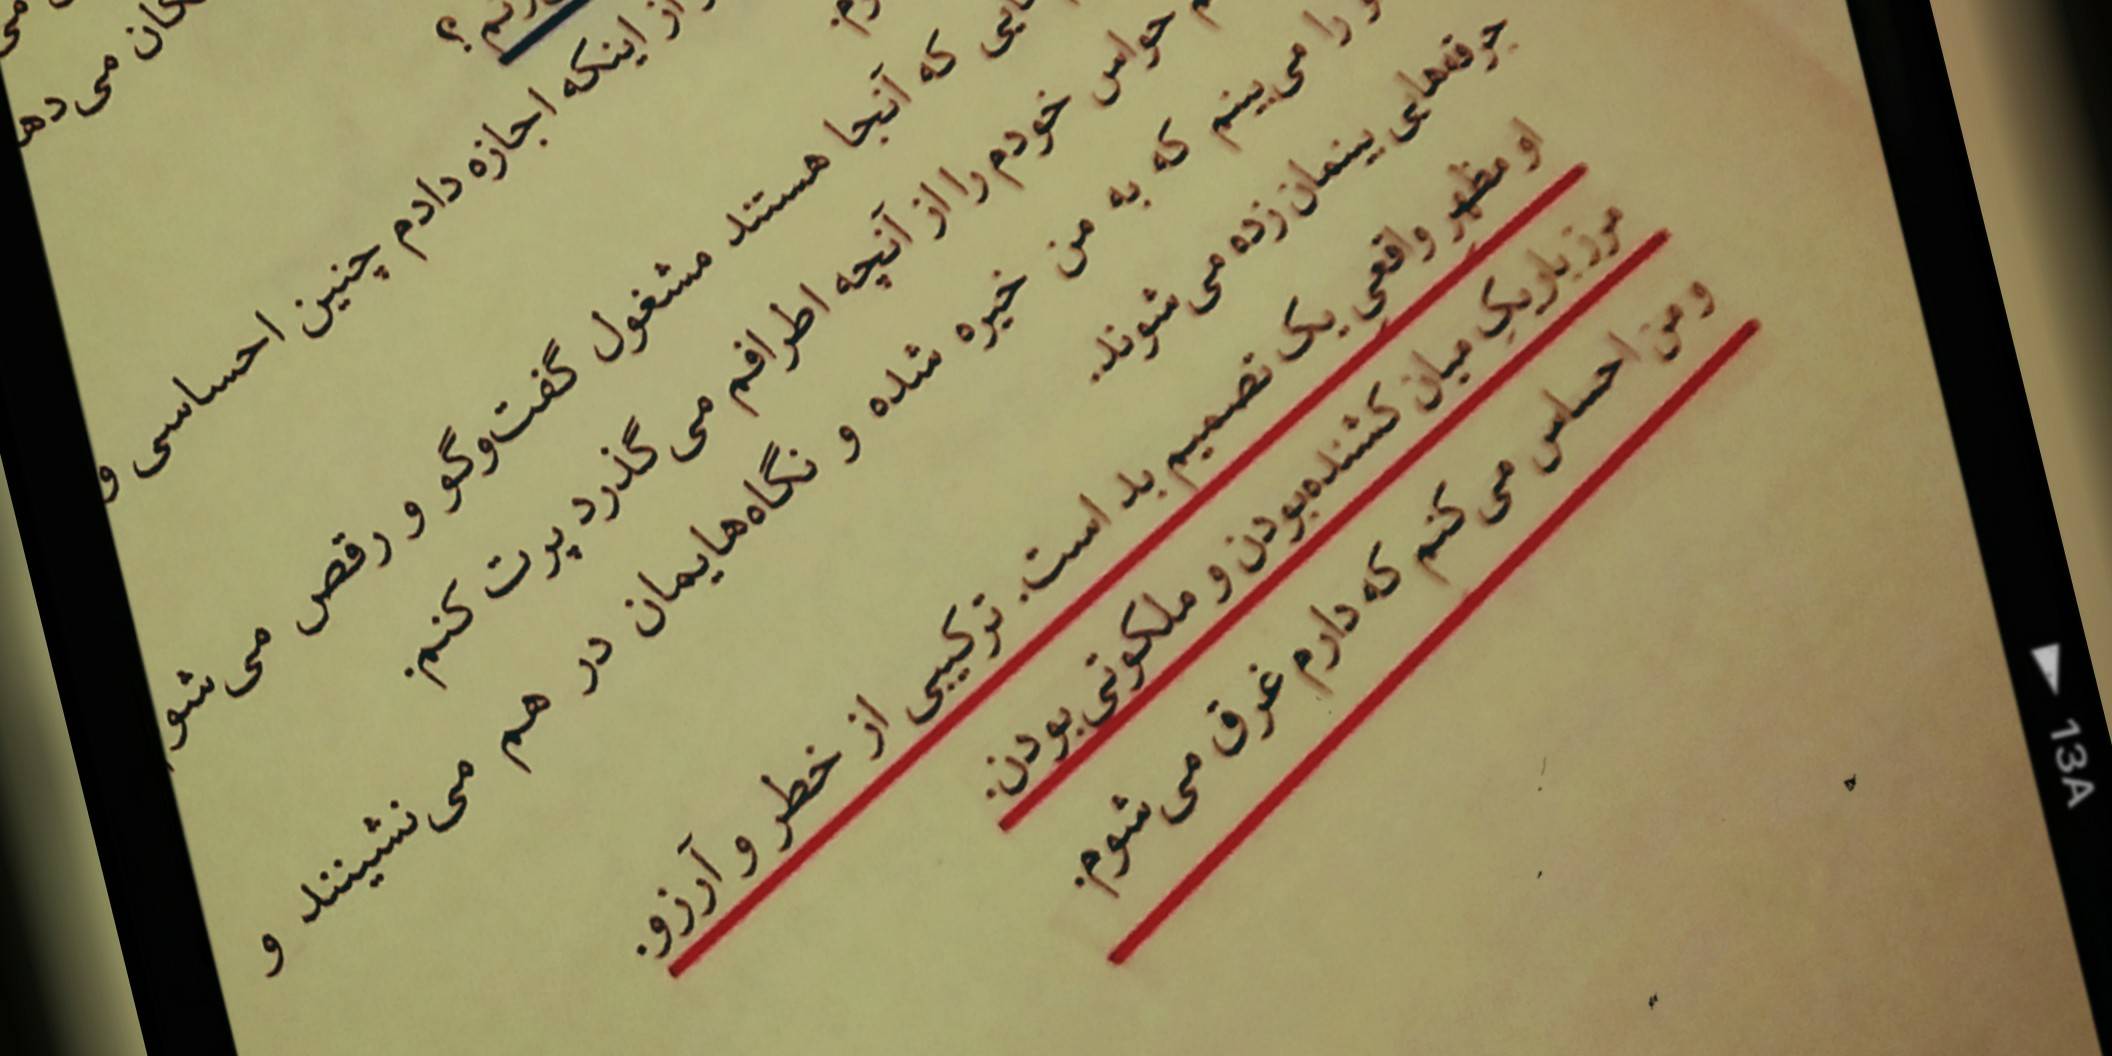 می
کان می‌دهـ
؟
از اینکه اجازه دادم چنین احساسی و
که آنجا هستند مشغول گفت‌وگو و رقص می‌شو
حواس خودم را از آنچه اطرافم می‌گذرد پرت کنم.
را می‌بینم که به من خیره شده و نگاه‌هایمان در هم می‌نشینند و
جرقه‌هایی بینمان زده می‌شوند.
او مظهر واقعی یک تصمیم بد است. ترکیبی از خطر و آرزو.
مرز باریکِ میان کشنده‌بودن و ملکوتی‌بودن.
و من احساس می‌کنم که دارم غرق می‌شوم.
13A